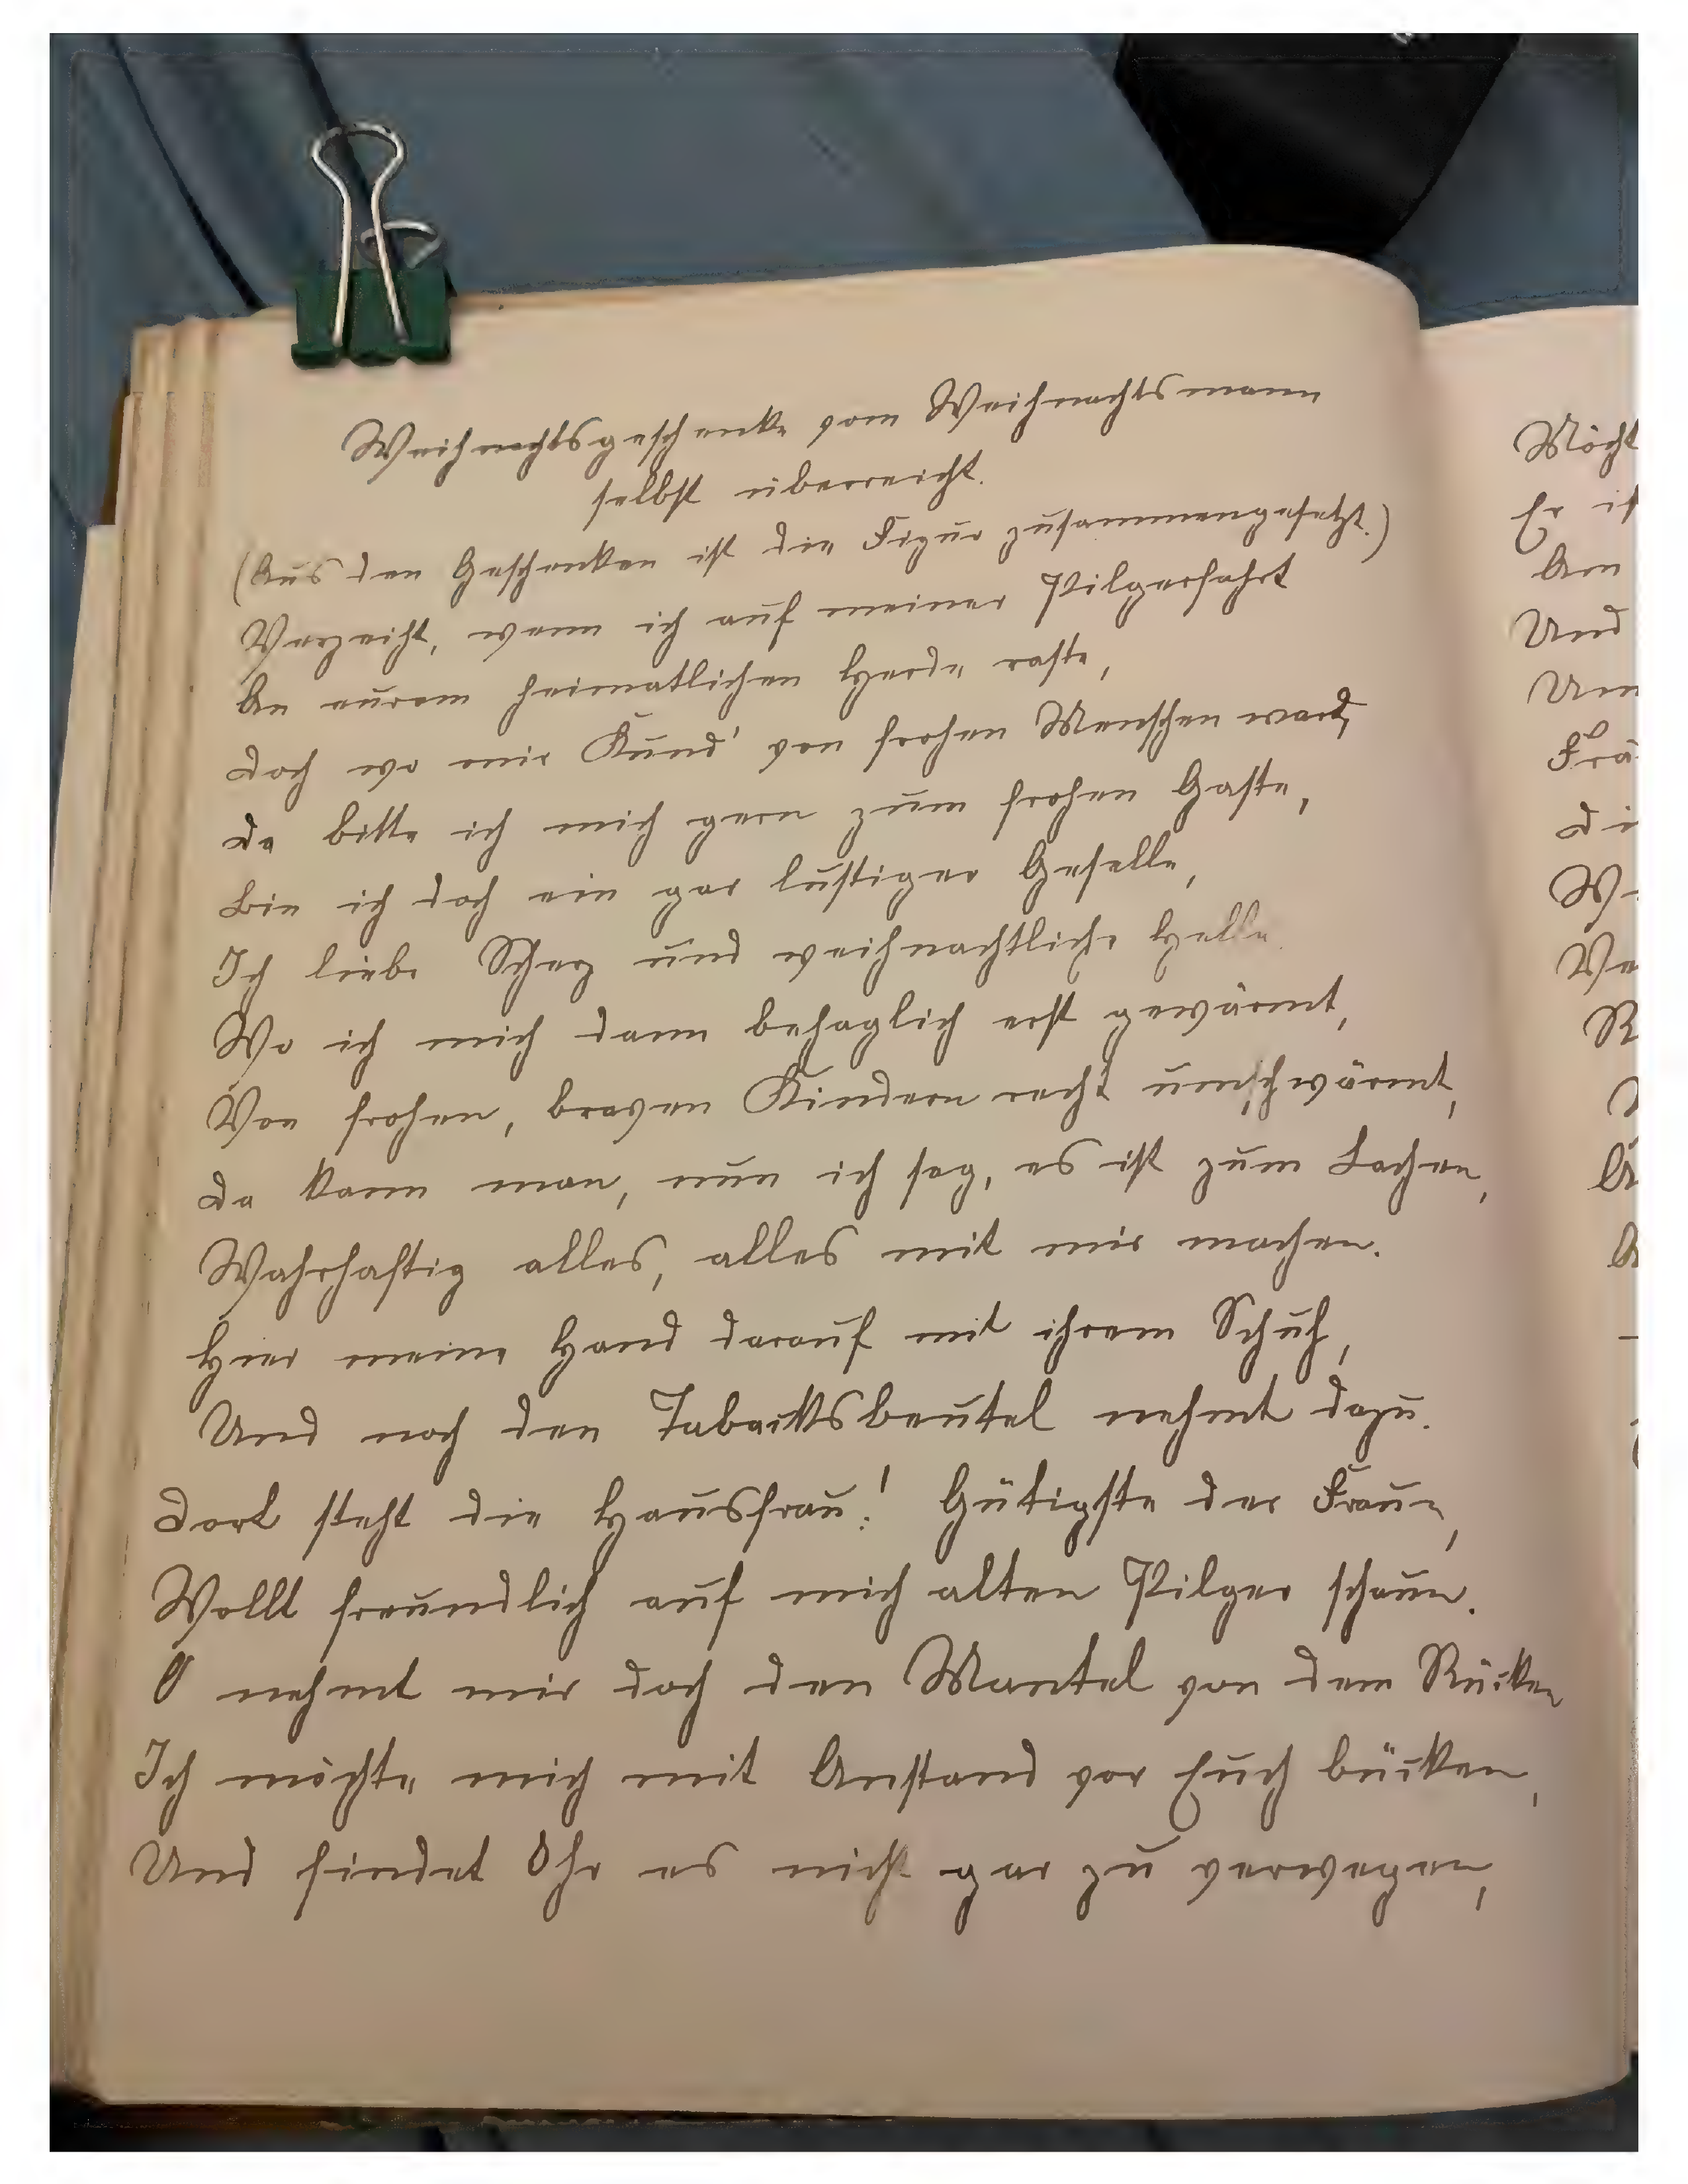 Weihnachtsgeschenke vom Weihnachtsmann
selbst überreicht.
(Aus den Geschenken ist die Figur zusammengesetzt.)
Verzeiht, wenn ich auf meiner Pilgerfahrt
An eurem heimatlichen Herde raste,
Doch wo mir Kund' von frohen Menschen ward,
Da bitte ich mich gern zum frohen Gaste,
Bin ich doch ein gar lustiger Geselle,
Ich liebe Scherz und weihnachtliche Helle.
Wo ich mich dann behaglich erst gewärmt,
Von frohen, braven Kindern recht umschwärmt,
Da kann man, nun ich sag, es ist zum Lachen,
Wahrhaftig alles, alles mit mir machen.
Hier meine Hand darauf mit ihrem Schuh,
Und noch den Tabacksbeutel nehmt dazu.
Dort steht die Hausfrau! Gütigste der Fraun,
Wollt freundlich auf mich alten Pilger schaun.
O nehmt mir doch den Mantel von dem Rücken
Ich möchte mich mit Anstand vor Euch bücken,
Und findet Ihr es nicht gar zu verwegen,
Möcht
Er
Am
Und
Um